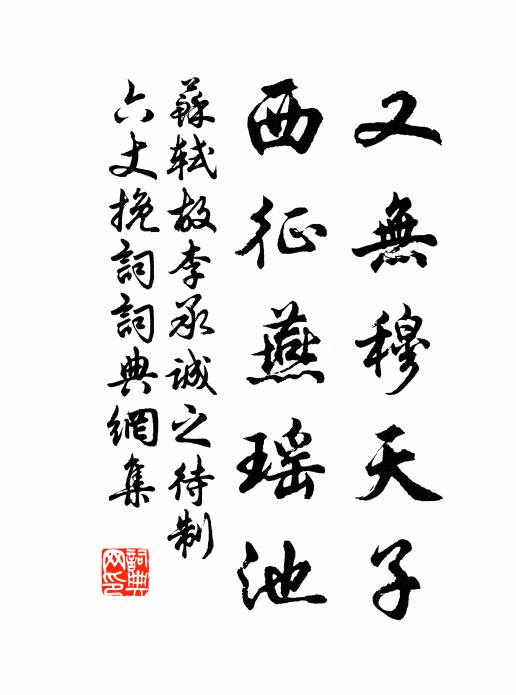 又無穆天子
西征燕瑤池
蘇軾故李承誠之待制
六丈挽詞詞典網集
詞典网印